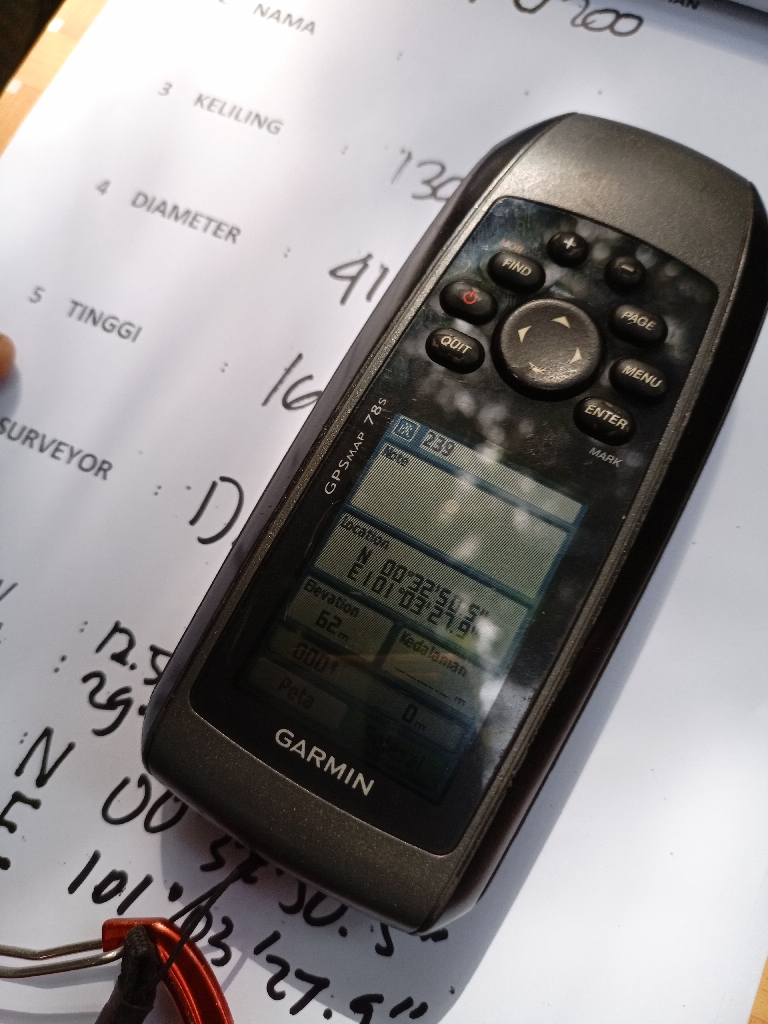 NAMA :
3 KELILING : 130
4 DIAMETER : 41
5 TINGGI : 16
SURVEYOR : D
: 12.5
: 29.
: N 00°32'50.5"
E 101°03'27.9"
MOB
FIND
+
-
QUIT
PAGE
MENU
ENTER
MARK
GPSMAP 78s
239
Note
Location
N 00°32'50.5"
E101°03'27.9"
Elevation
62m
Kedalaman
m
0m
Peta
GARMIN